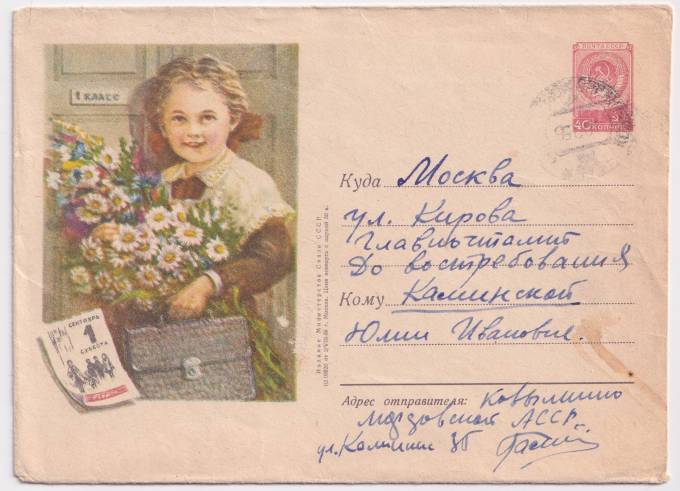 1 КЛАСС
СЕНТЯБРЬ
1
СУББОТА
ПОЧТА СССР
40 КОПЕЕК
Издание Министерства Связи СССР
Куда Москва
ул. Кирова
Главпочтамт
До востребования
Кому Каминской
Юлии Ивановне.
Адрес отправителя: Ковылкино
Мордовской АССР
ул. Калинина